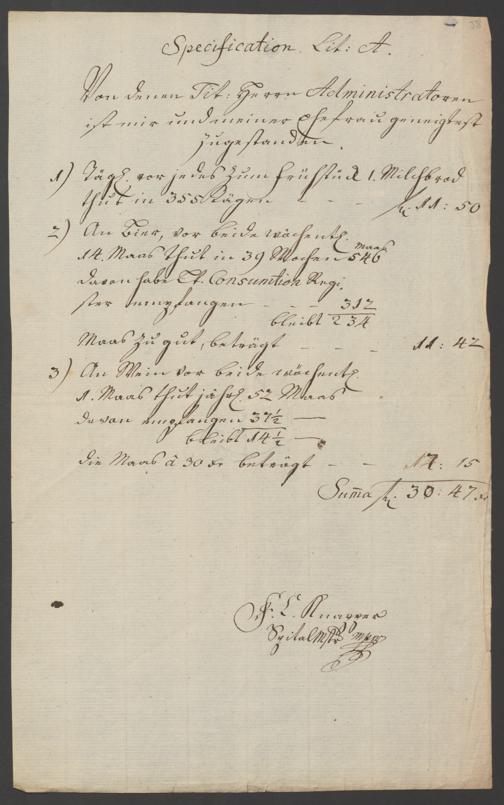 38
Specification. Lit: A.
Von denen Tit: Herrn Administratoren
ist mir und meiner Ehefrau geneigtest
zugestanden.
1) Tägl. vor jedes zum Frühstück 1. Milchbrod
thut in 355 Tägen - - - f. 11: 50
2) An Bier, vor beide wöchentl.
14. Maas thut in 39 Wochen 546 Maas
davon habe Consumtion Regi-
ster empfangen - - - 312
bleibt 234
Maas zu gut, beträgt - - - 11: 42
3) An Wein vor beide wöchentl.
1. Maas thut jährl. 52 Maas
davon empfangen 37½ —
bleibt 14½ —
die Maas à 30 xr beträgt - - 15
Summa f. 30: 47 xr
Knapper
SpitalMstr mpp